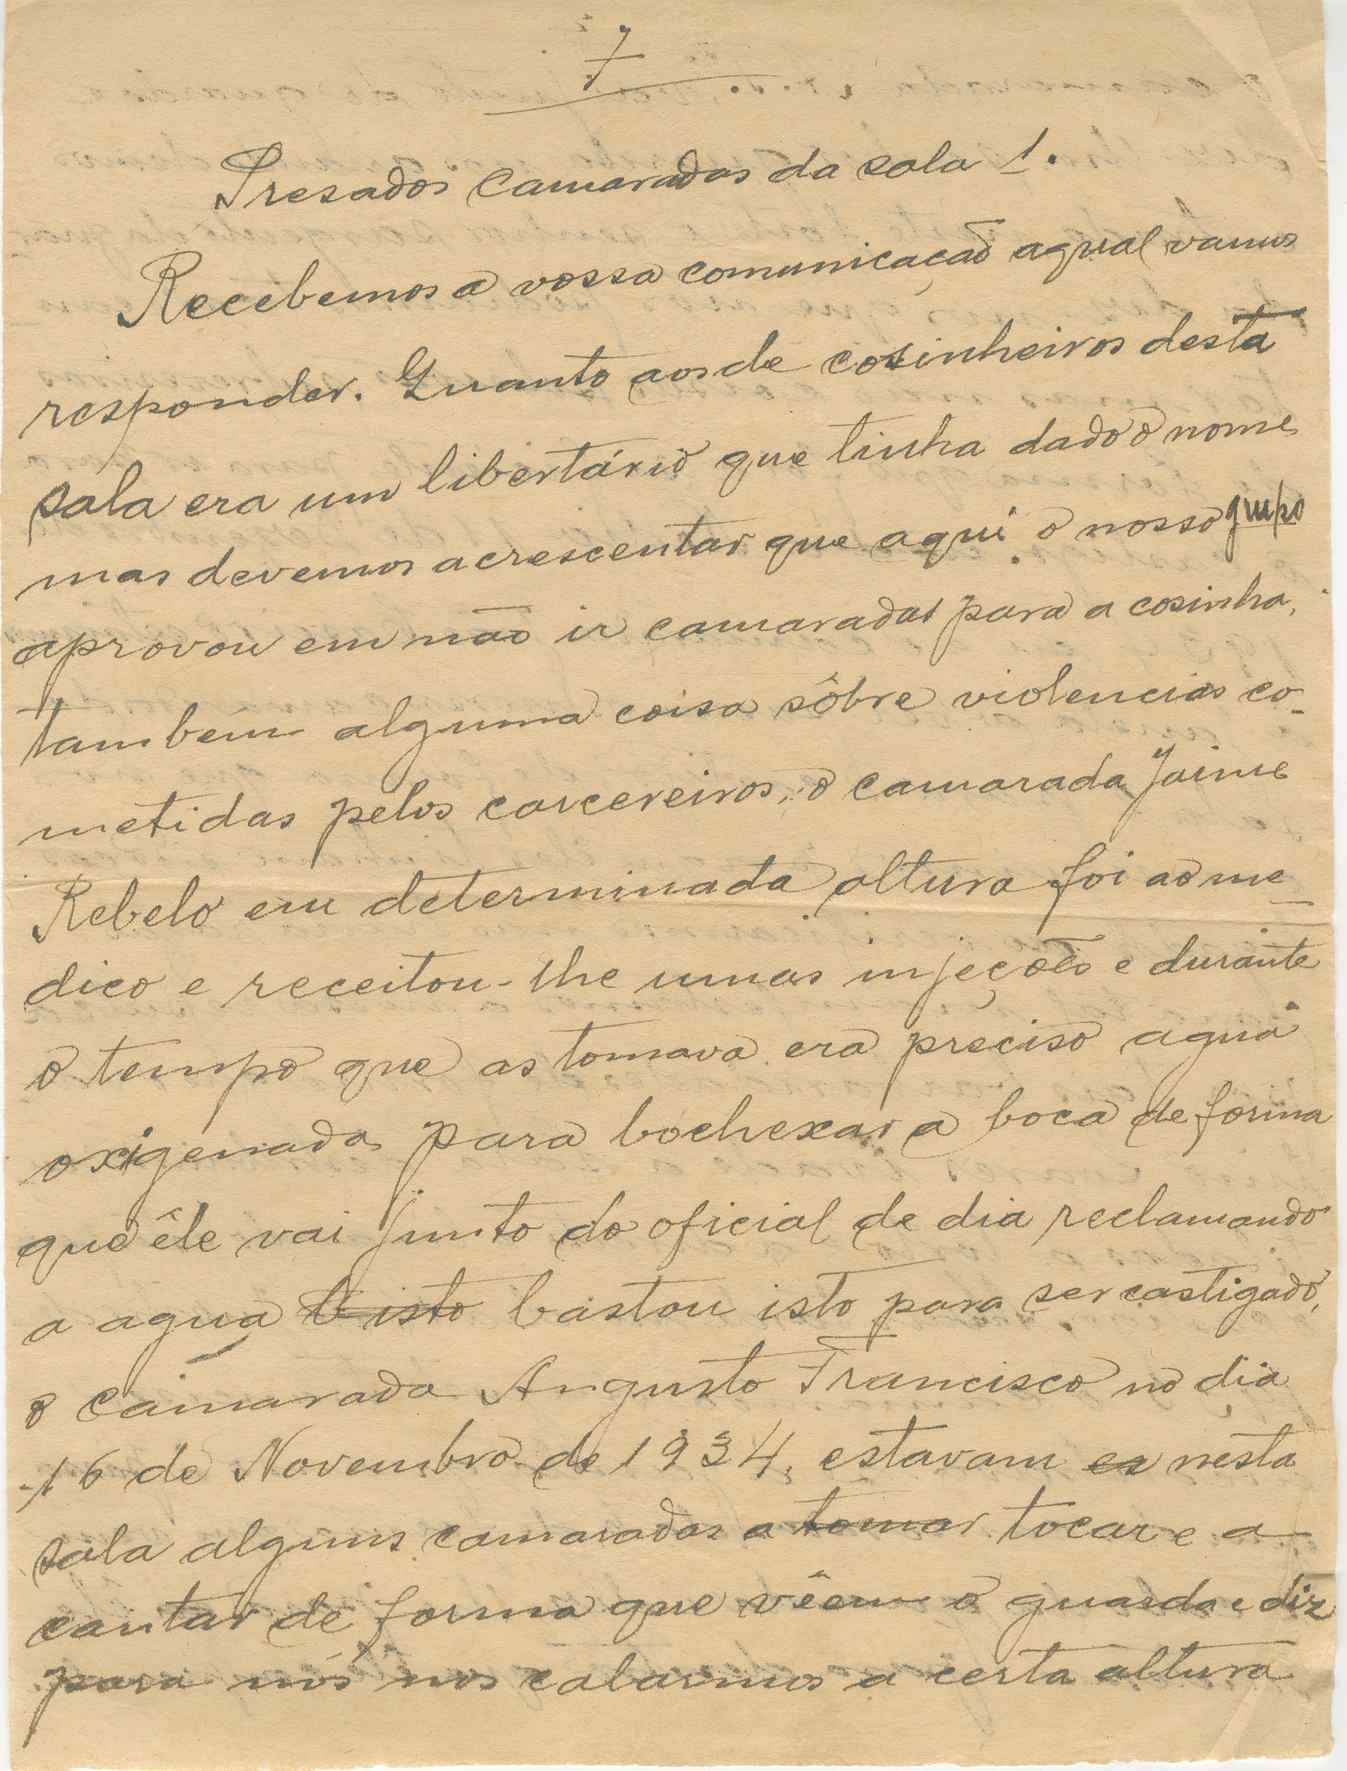 7
Presados camaradas da sala 1.
Recebemos a vossa comunicação aqual vamos
responder. Quanto aos de cosinheiros desta
sala era um libertário que tinha dado o nome
mas devemos acrescentar que aqui o nosso grupo
aprovou em não ir camaradas para a cosinha,
tambem alguma coisa sôbre violencias co-
metidas pelos carcereiros, o camarada Jaime
Rebelo em determinada altura foi ao me-
dico e receitou-lhe umas injeções e durante
o tempo que as tomava era preciso agua
oxigenada para bochexar a boca de forma
que êle vai junto do oficial de dia reclamando
a agua e isto bastou isto para ser castigado,
o camarada Augusto Francisco no dia
16 de Novembro de 1934, estavam es nesta
sala alguns camaradas a tomar tocar e a
cantar de forma que vêem o guarda e diz
para nós nos calarmos a certa altura